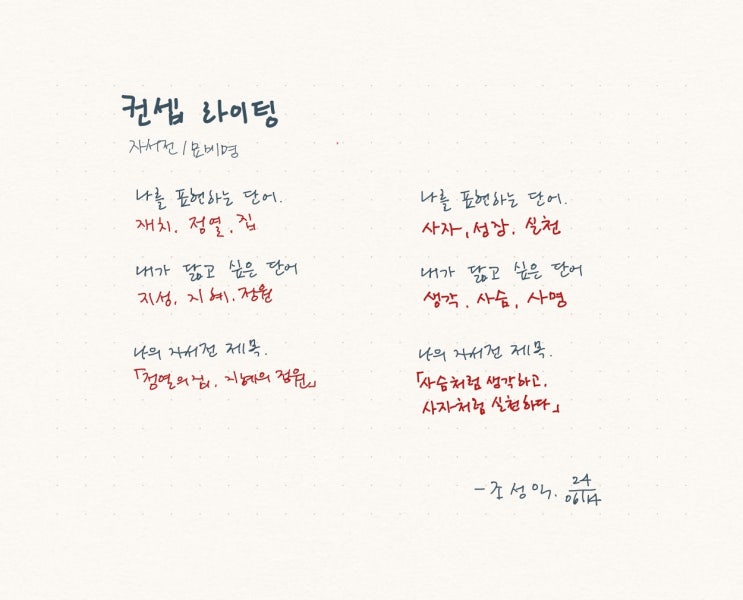 컨셉 라이팅
자서전 / 묘비명
나를 표현하는 단어.
재치. 정열. 집
내가 닮고 싶은 단어
지성. 지혜. 정원
나의 자서전 제목.
「정열의 집, 지혜의 정원」
나를 표현하는 단어.
사자, 성장. 실천
내가 닮고 싶은 단어
생각. 사슴, 사명
나의 자서전 제목.
「사슴처럼 생각하고,
사자처럼 실천하다」
- 조성익. 24
06/14